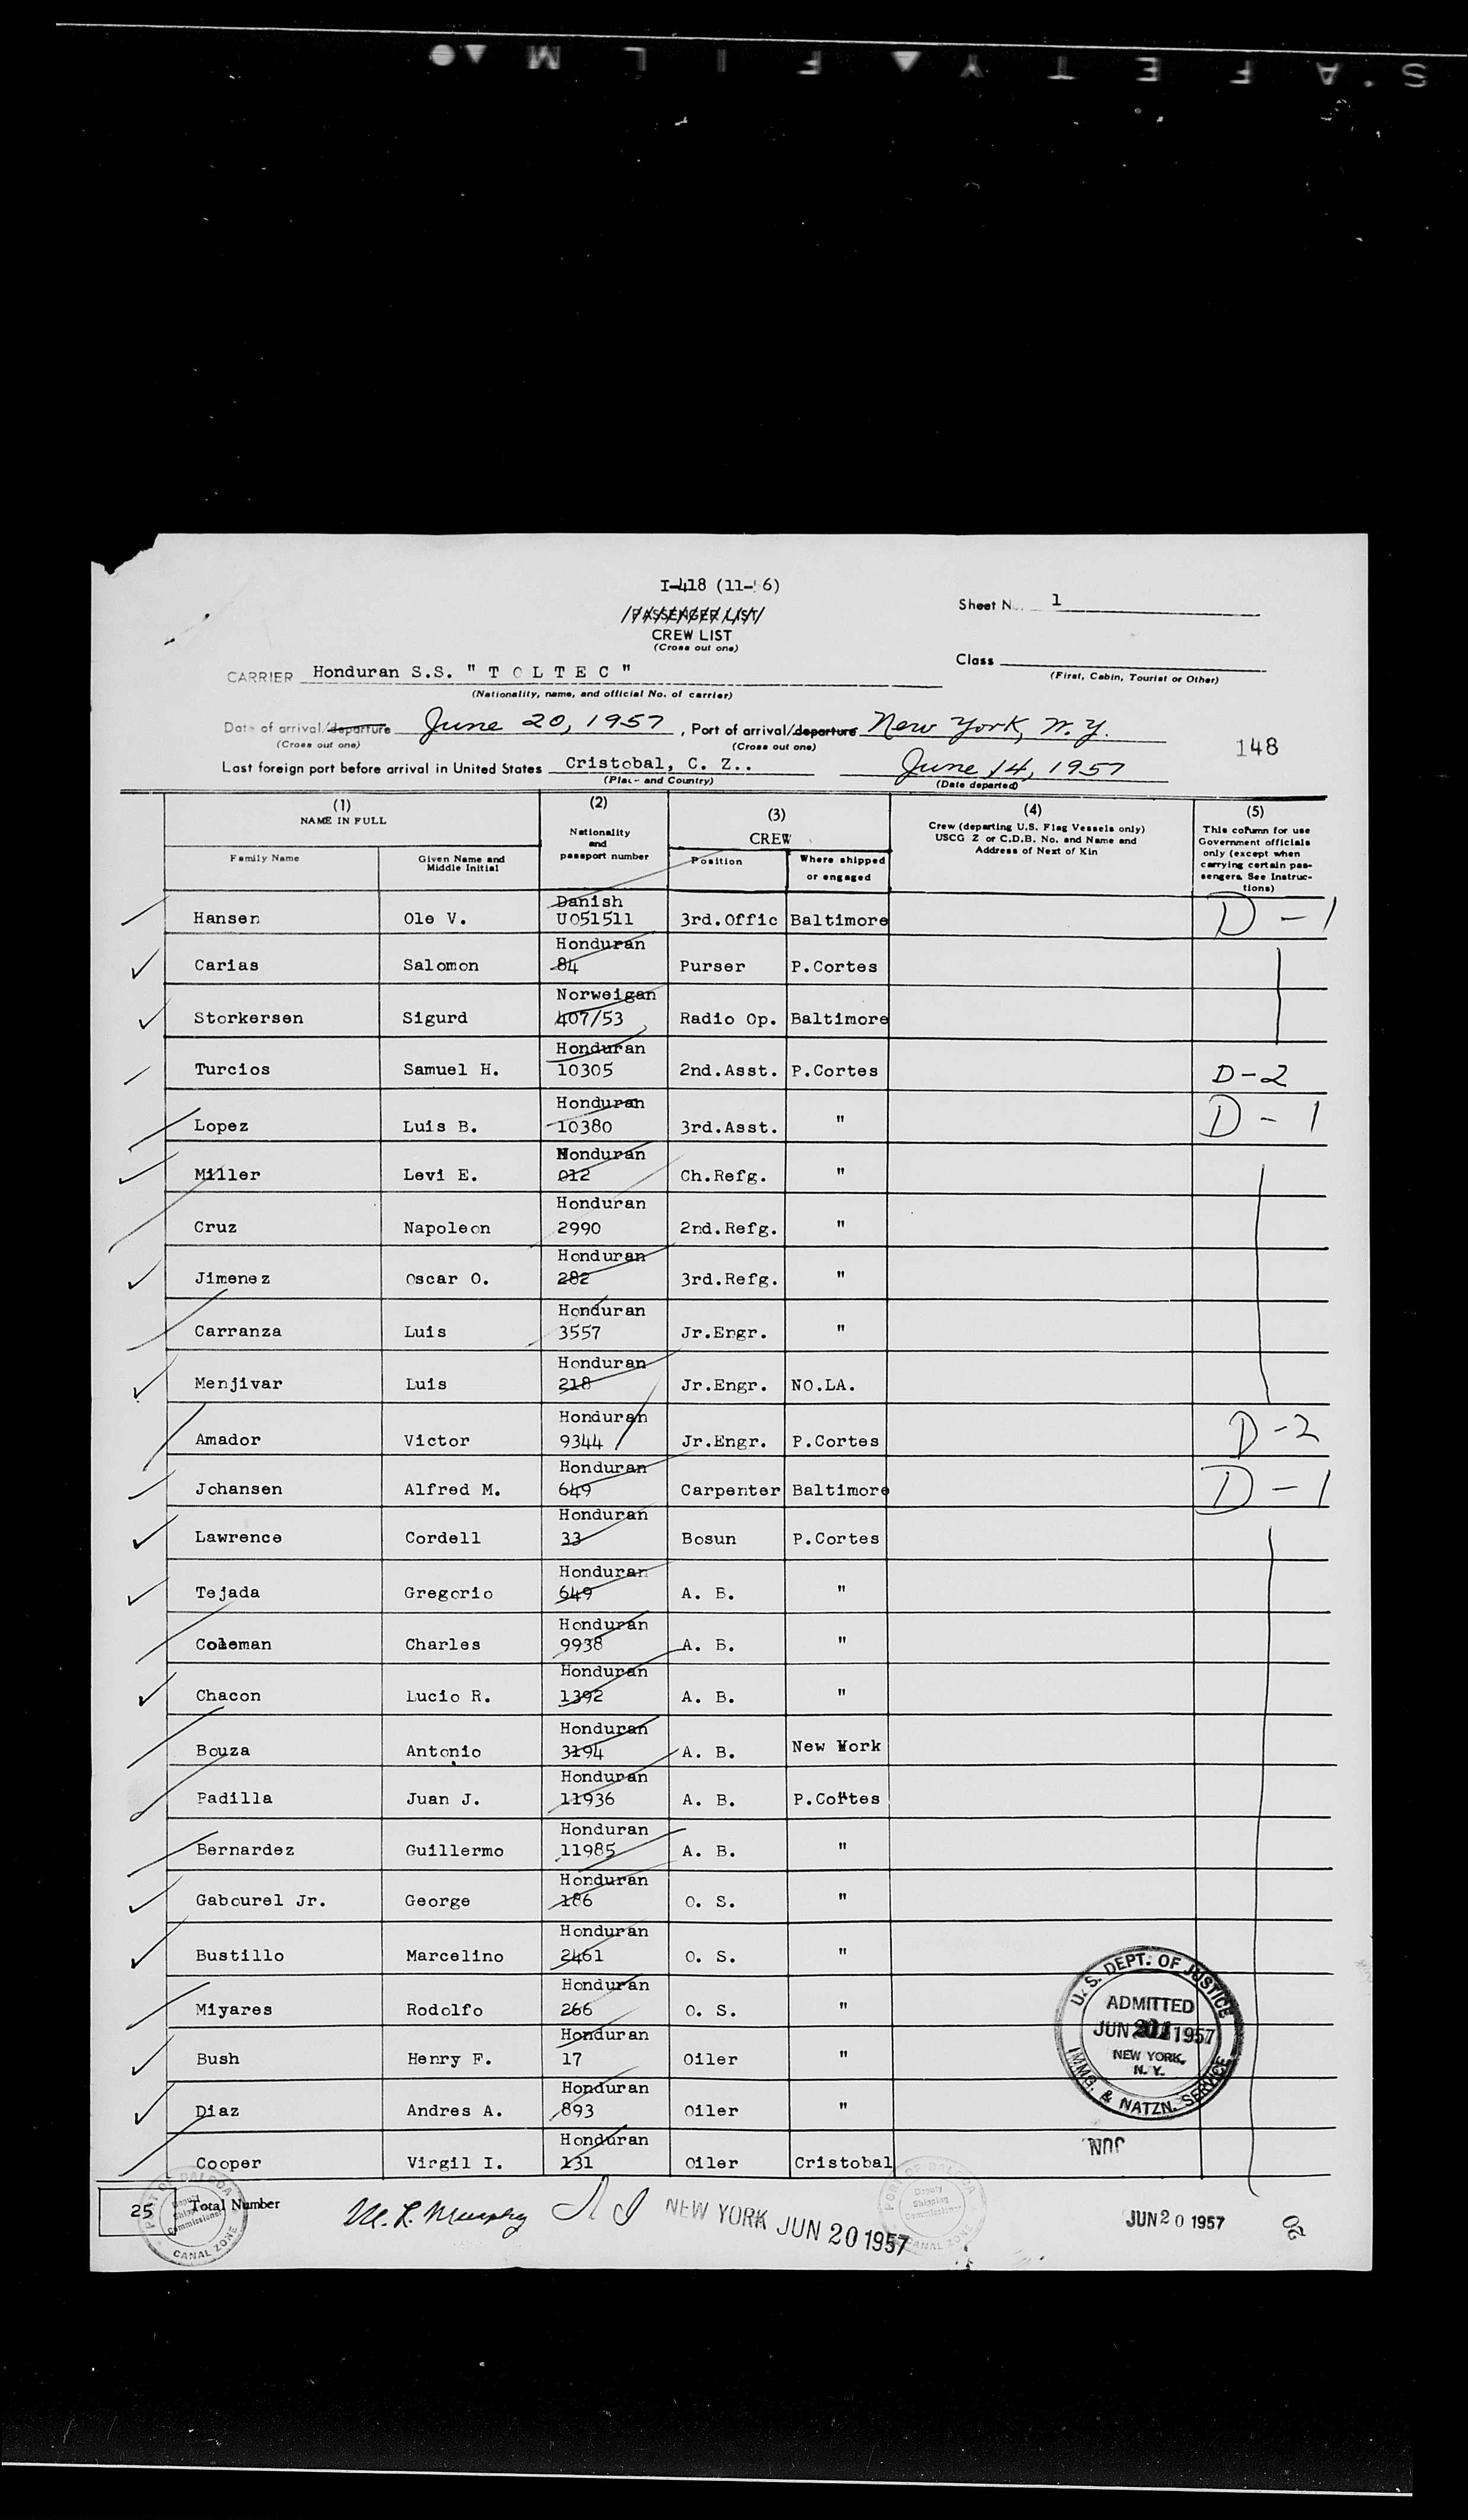 S·AFETY ▲ FILM ▲●
I-418 (11-56)
PASSENGER LIST
Sheet No. 1
CREW LIST
(Cross out one)
Class
(First, Cabin, Tourist or Other)
CARRIER Honduran S.S. " T O L T E C "
(Nationality, name, and official No. of carrier)
Date of arrival/departure June 20, 1957, Port of arrival/departure New York, N.Y.
(Cross out one) (Cross out one)
148
Last foreign port before arrival in United States Cristobal, C. Z.. June 14, 1957
(Place and Country) (Date departed)
(1) NAME IN FULL
Family Name
Given Name and Middle Initial
(2) Nationality and passport number
(3) CREW
Position
Where shipped or engaged
(4) Crew (departing U.S. Flag Vessels only) USCG Z or C.D.B. No. and Name and Address of Next of Kin
(5) This column for use Government officials only (except when carrying certain passengers. See Instructions)
Hansen Ole V. Danish U051511 3rd.Offic Baltimore D-1
Carias Salomon Honduran 84 Purser P.Cortes
Storkersen Sigurd Norweigan 407/53 Radio Op. Baltimore
Turcios Samuel H. Honduran 10305 2nd.Asst. P.Cortes D-2
Lopez Luis B. Honduran 10380 3rd.Asst. " D-1
Miller Levi E. Honduran 012 Ch.Refg. "
Cruz Napoleon Honduran 2990 2nd.Refg. "
Jimenez Oscar O. Honduran 282 3rd.Refg. "
Carranza Luis Honduran 3557 Jr.Engr. "
Menjivar Luis Honduran 218 Jr.Engr. NO.LA.
Amador Victor Honduran 9344 Jr.Engr. P.Cortes D-2
Johansen Alfred M. Honduran 649 Carpenter Baltimore D-1
Lawrence Cordell Honduran 33 Bosun P.Cortes
Tejada Gregorio Honduran 649 A. B. "
Coleman Charles Honduran 9938 A. B. "
Chacon Lucio R. Honduran 1392 A. B. "
Bouza Antonio Honduran 3194 A. B. New York
Padilla Juan J. Honduran 11936 A. B. P.Cortes
Bernardez Guillermo Honduran 11985 A. B. "
Gabourel Jr. George Honduran 186 O. S. "
Bustillo Marcelino Honduran 2461 O. S. "
Miyares Rodolfo Honduran 266 O. S. "
Bush Henry F. Honduran 17 Oiler "
Diaz Andres A. Honduran 893 Oiler "
Cooper Virgil I. Honduran 131 Oiler Cristobal
U.S. DEPT. OF JUSTICE
ADMITTED
JUN 1957
NEW YORK,
N.Y.
IMMG. & NATZN. SERVICE
JUN
25 Total Number
PORT OF BALBOA
Deputy
Shipping
Commissioner
CANAL ZONE
M. L. Murphy
NEW YORK JUN 20 1957
PORT OF BALBOA
Deputy
Shipping
Commissioner
CANAL ZONE
JUN 20 1957
20